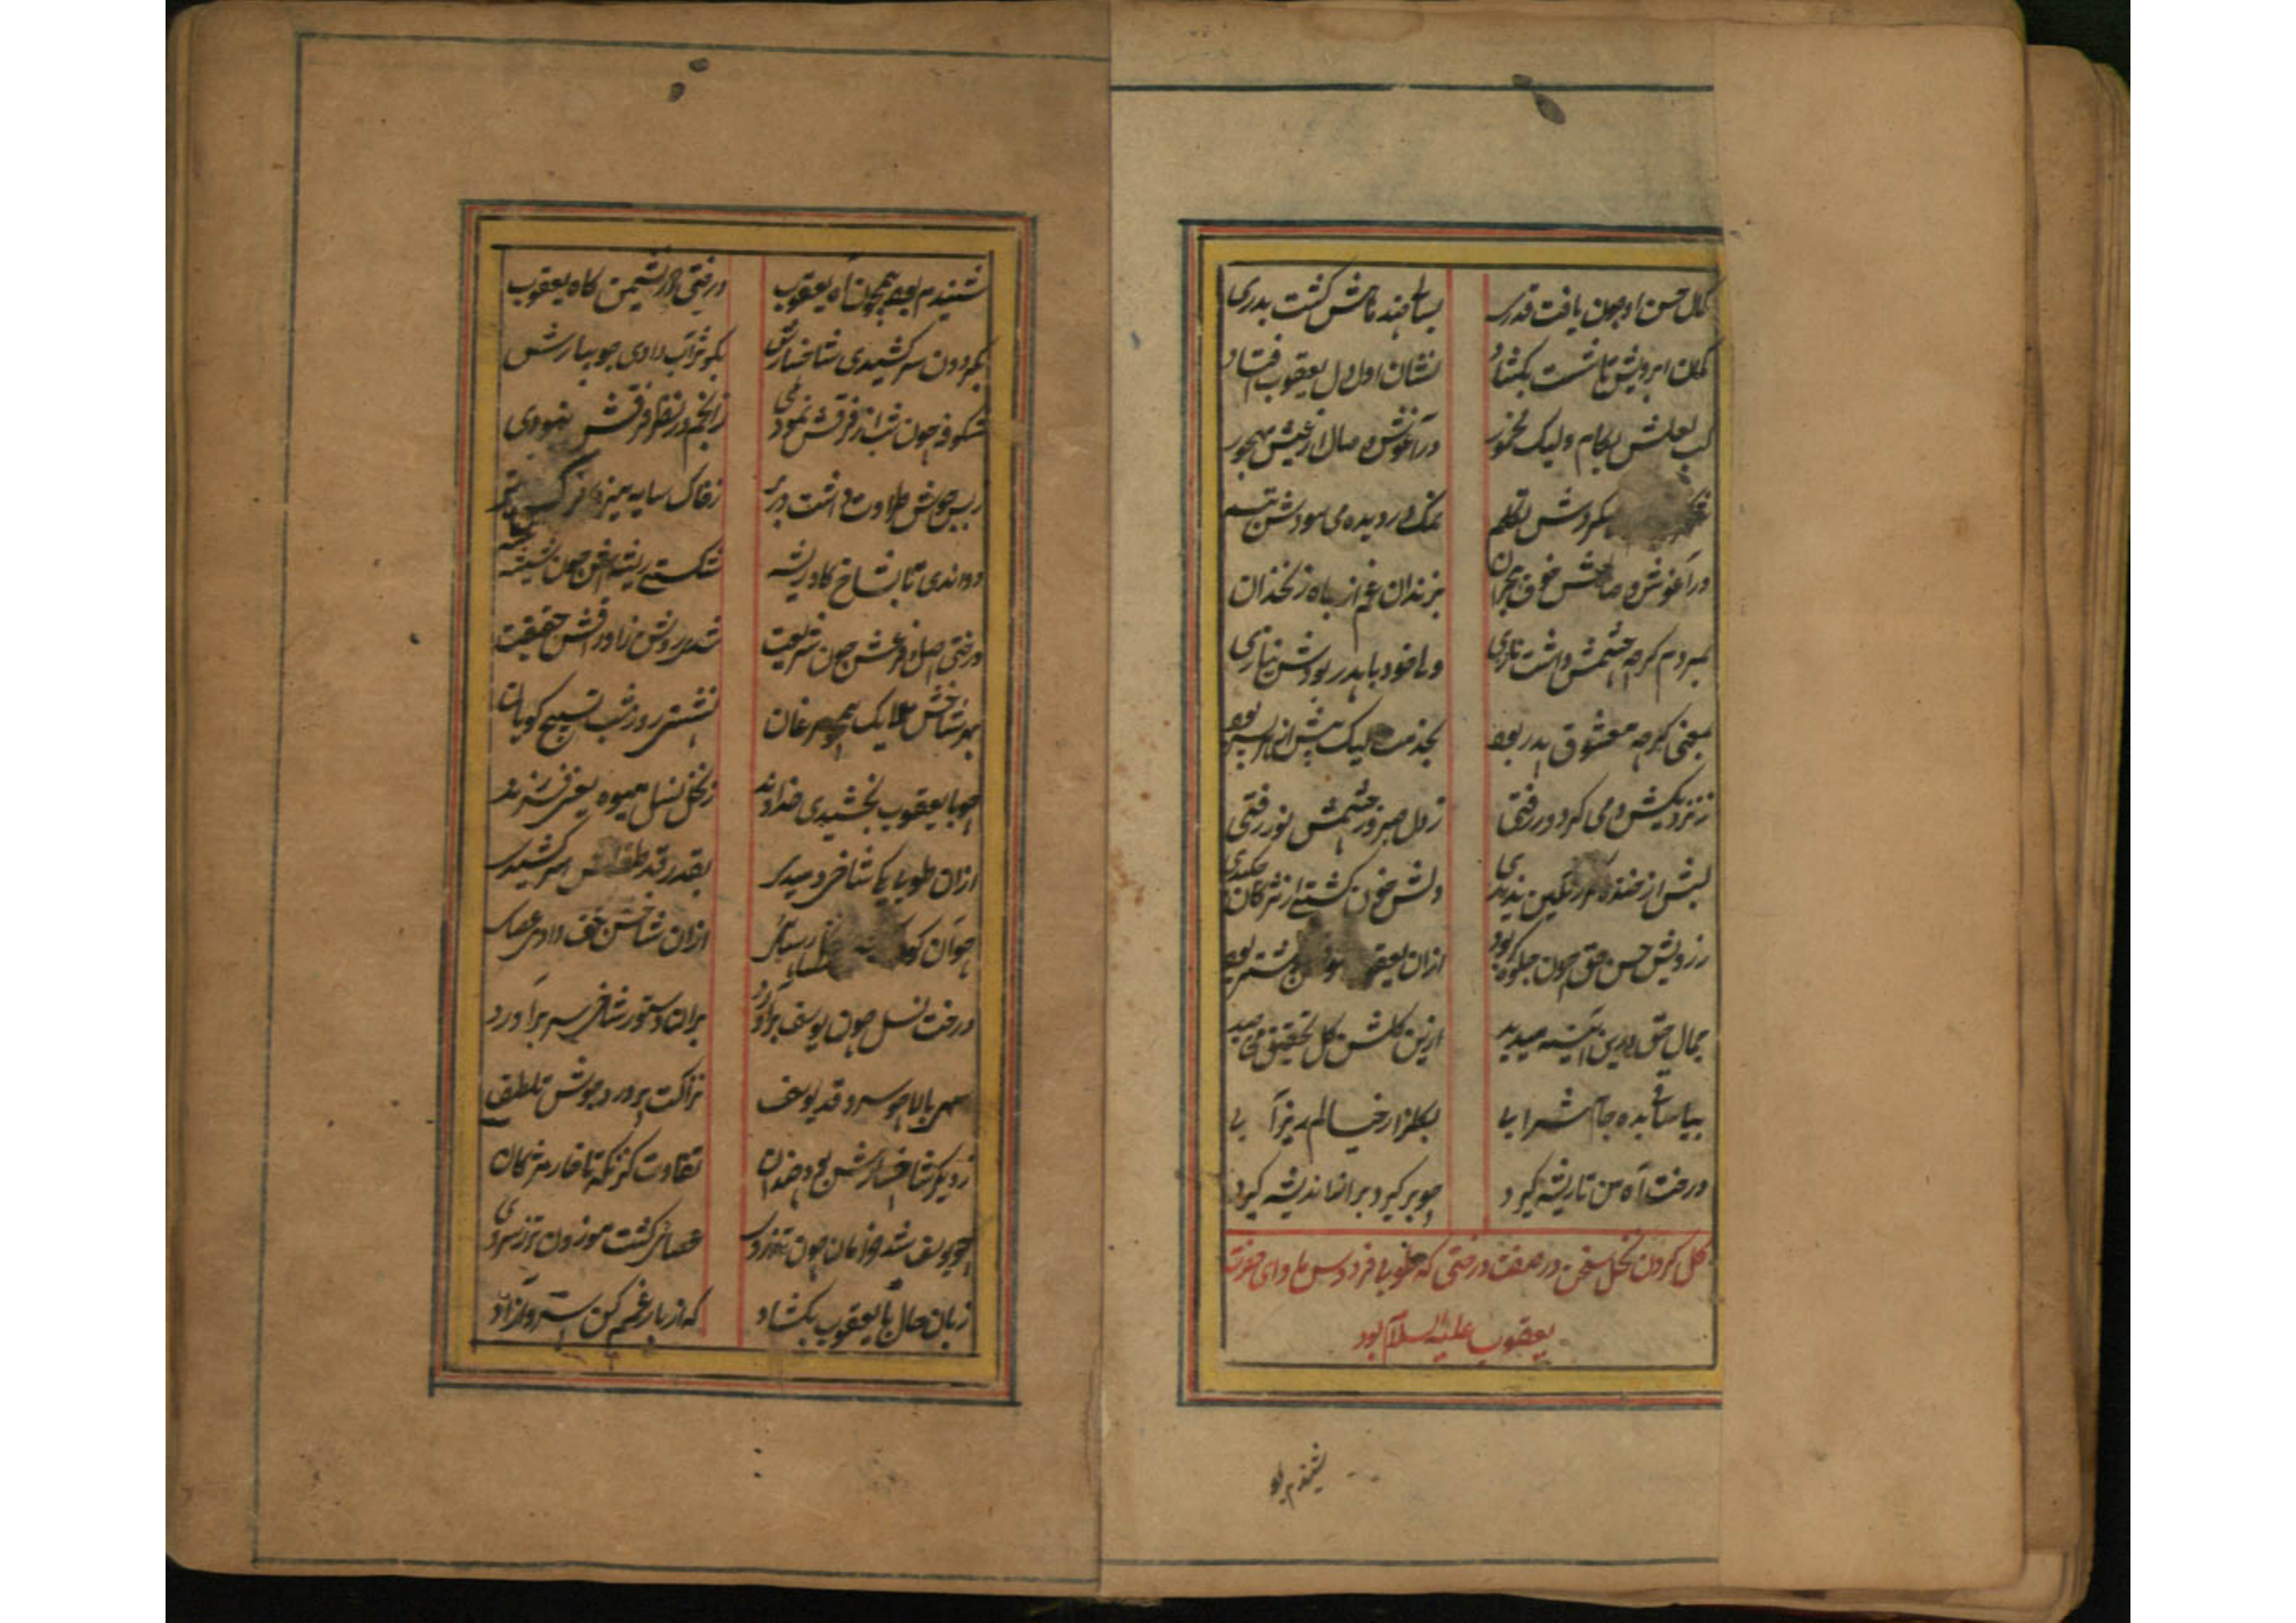 کمال حسن او چون یافت قدری بسالی چند ماهش گشت بدری
کمان ابرویش تا شست بکشاد نشان اول دل یعقوب افتاد
لب لعلش بکام ولیک مخمور در آغوش وصال از عیش مهجور
میکردش تکلم نمک در دیده می سودش تبسم
در آغوش وصالش خوف هجران بزندان غم از چاه زنخدان
بمردم گرچه چشمش داشت نازی ولی خود با پدر بودش نیازی
بمعنی گرچه معشوق پدر بود بخدمت لیک پیش از هر پسر بود
ز نزدیکیش دمی گر دور رفتی ز دل صبر و ز چشمش نور رفتی
لبش از خنده گر رنگین ندیدی دلش خون گشتی از مژگان چکیدی
ز رویش حسن حق چون جلوه گر بود ازان
جمال حق درین آئینه میدید ازین گلشن گل تحقیق می چید
بیا ساقی بده جام شرابی بگلزار خیالم ریز آبی
درخت آه من تا ریشه گیرد چو بر گیرد بر اندیشه گیرد
گل کردن نخل سخن در صفت درختی که طوبا فردوس ماوای حضرت
یعقوب علیه السلام بود
شنیدم بو
شنیدم بود همچون آه یعقوب درختی در نشیمن گاه یعقوب
بگردون سر کشیدی شاخسارش ز کوثر آب دادی جویبارش
شکوفه چون شب از فرقش نمودی ز انجم در نظر فرقش نبودی
ز بس جوش طراوت داشت در بر ز خاک سایه
دواندی تا بشاخ گاو ریشه شکستی ریشه اش چون شیشه
درختی اصل و فرعش چون شریعت شده روشن ز اوراقش حقیقت
بهر شاخش ملایک همچو مرغان نشستی روز و شب تسبیح گویان
چو با یعقوب بخشیدی خداوند ز نخل نسل میوه یعنی فرزند
ازان طوبا یکی شاخی دمیدی بقدر قد طفلش سر کشیدی
جوان ازان شاخش بکف دادی عصائی
درخت نسل چون یوسف برآورد بر آن دستور شاخی سر برآورد
سهی بالا چو سرو قد یوسف نزاکت پرورد جوش تلطف
ز دیگر شاخسارش بود چندان تفاوت کز نگه تا خار مژگان
چو یوسف شد خرامان چون تذروی عصائی گشت موزون تر ز سروی
زبان حال با یعقوب بکشاد که از بار غمم کن سرو آزاد